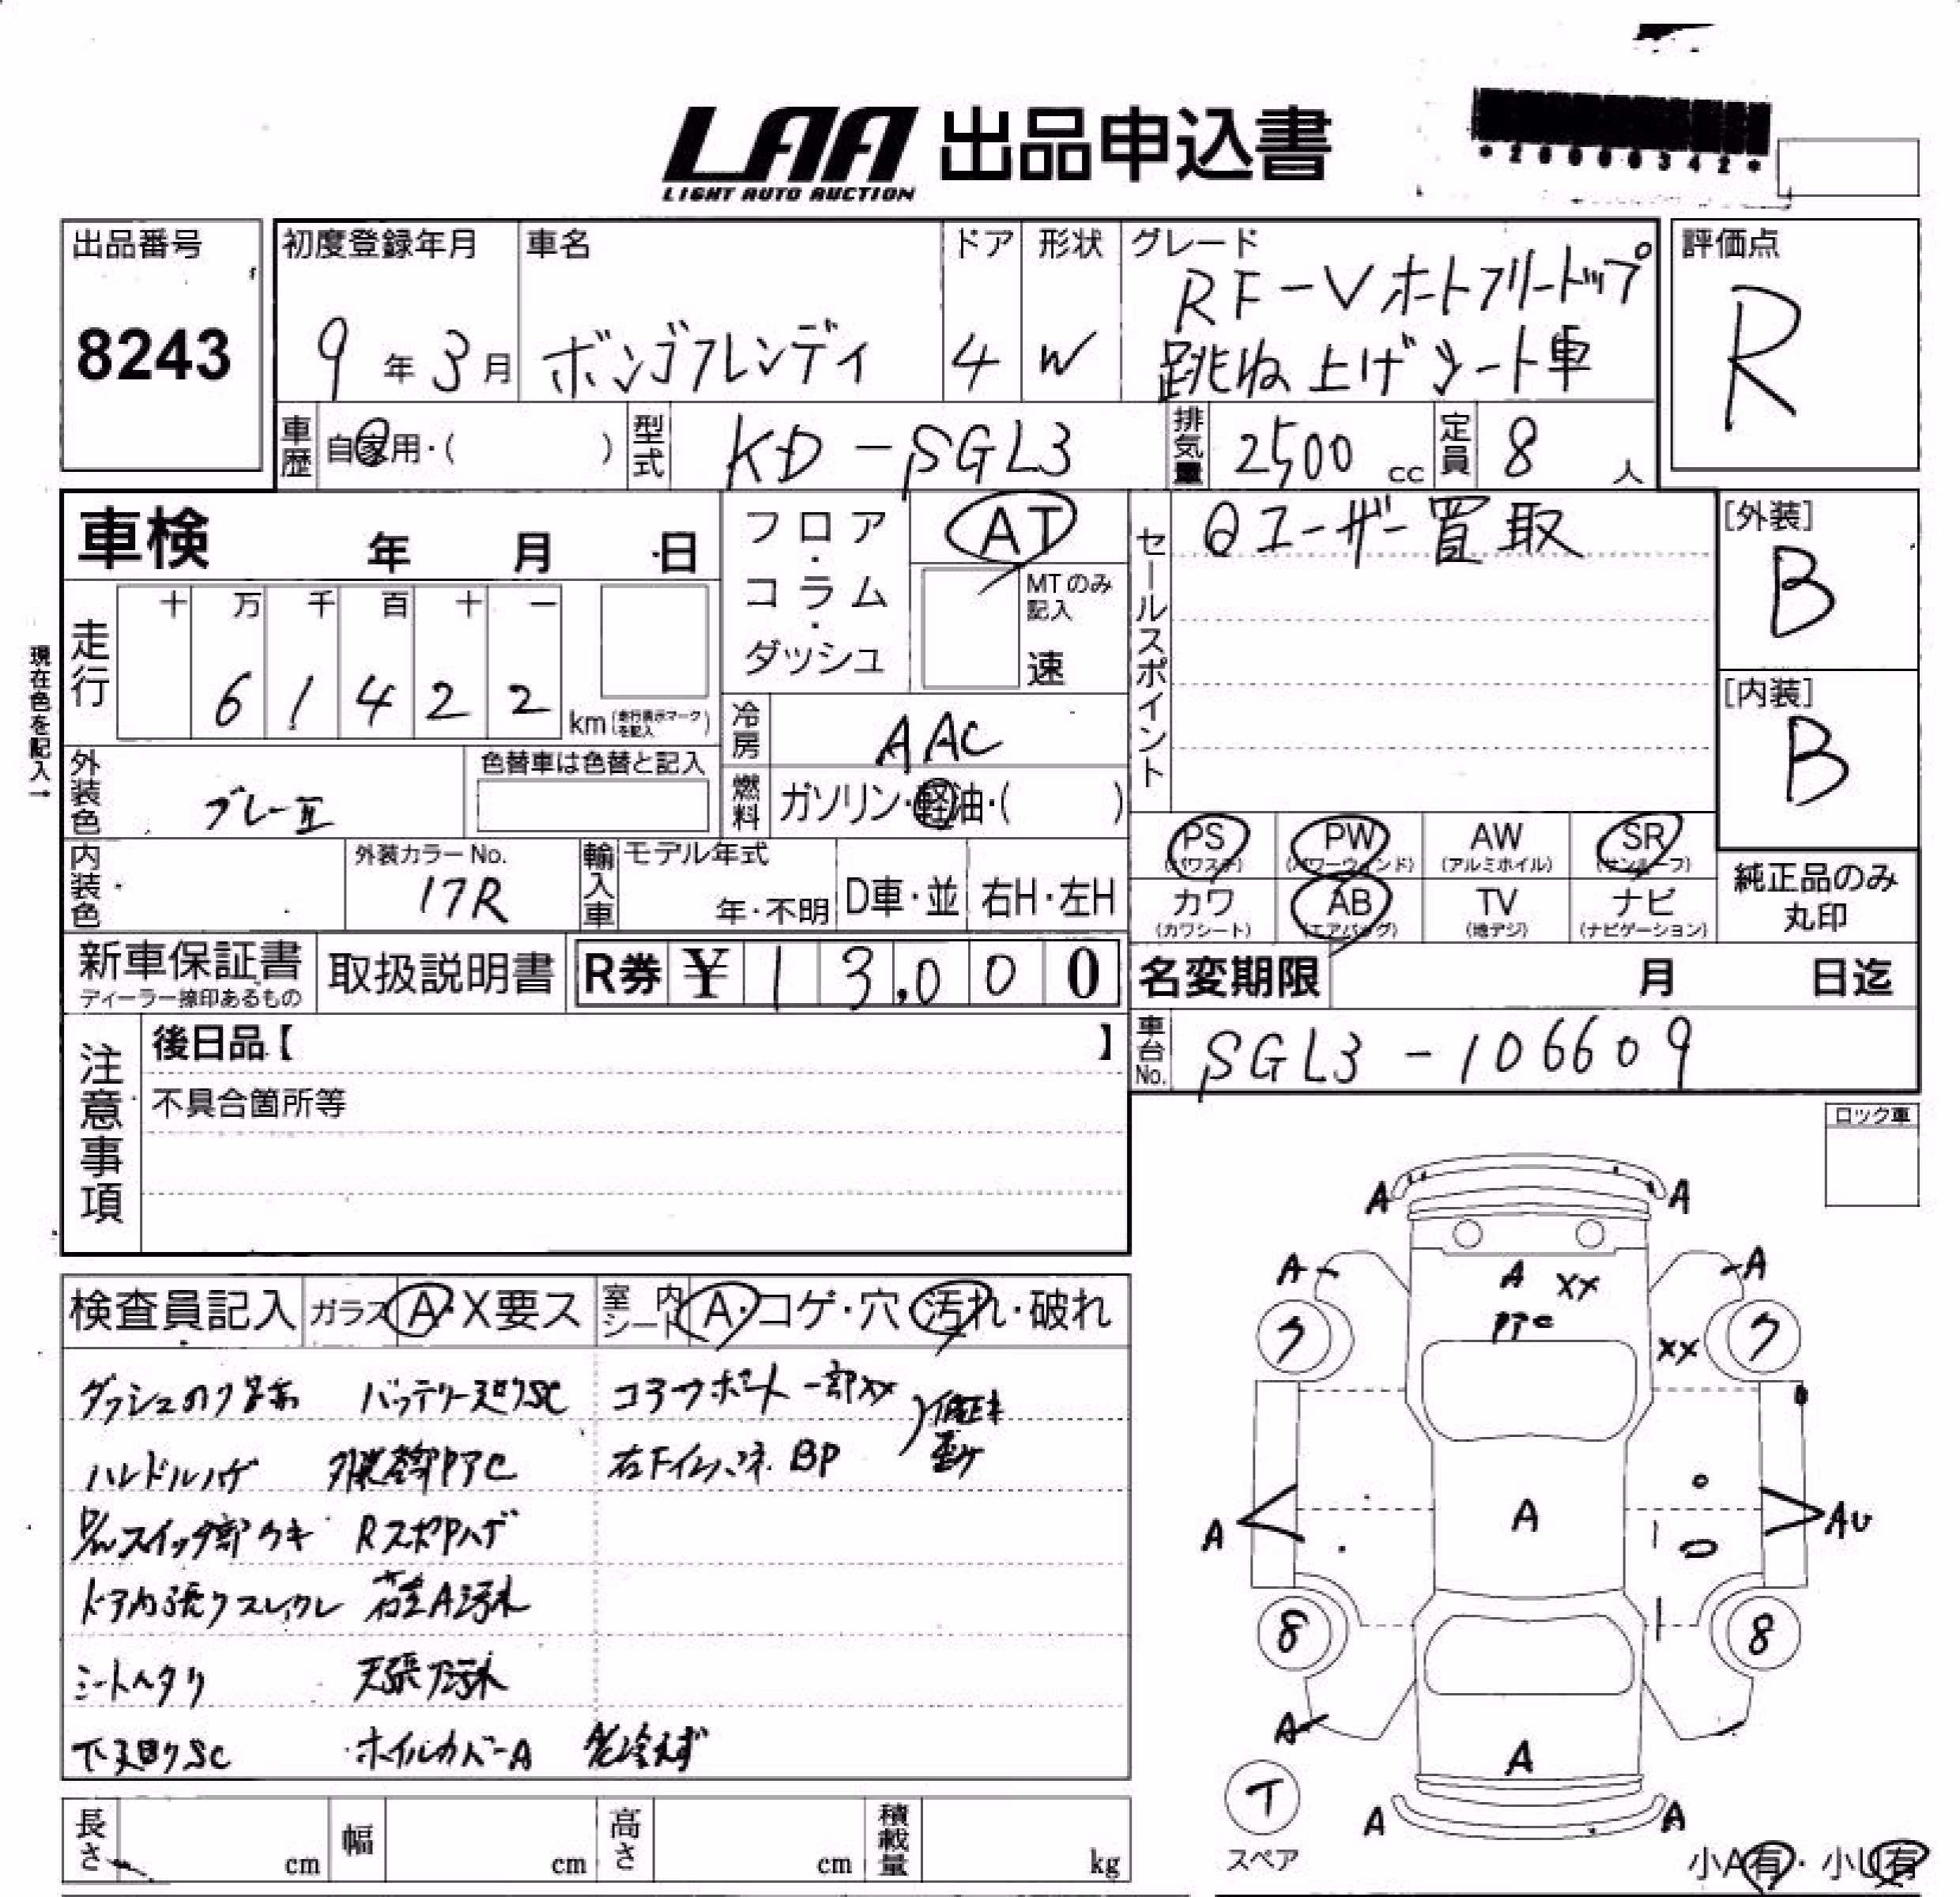 LAA 出品申込書
LIGHT AUTO AUCTION
*20000342*
出品番号
8243
初度登録年月
9年3月
車名
ボンゴフレンディ
ドア
4
形状
W
グレード
RF-Vオートフリートップ
跳ね上げシート車
評価点
R
車歴
自家用・( )
型式
KD-SGL3
排気量
2500cc
定員
8人
車検 年 月 日
現在色を記入→
走行
十 万 千 百 十 一
6 1 4 2 2
km (走行表示マークを記入)
フロア・コラム・ダッシュ
AT
MTのみ記入
速
セールスポイント
ユーザー買取
[外装]
B
[内装]
B
外装色
グレーII
色替車は色替と記入
冷房
AAC
燃料
ガソリン・軽油・( )
PS (パワステ)
PW (パワーウィンド)
AW (アルミホイル)
SR (サンルーフ)
カワ (カワシート)
AB (エアバッグ)
TV (地デジ)
ナビ (ナビゲーション)
純正品のみ
丸印
内装色
外装カラーNo.
17R
輸入車
モデル年式
年・不明
D車・並
右H・左H
新車保証書
ディーラー捺印あるもの
取扱説明書
R券 ¥ 13,000
名変期限 月 日迄
車台No.
SGL3-106609
注意事項
後日品【 】
不具合箇所等
ロック車
検査員記入
ガラス A・X要ス
室内シート A・コゲ・穴・汚れ・破れ
コアサポート一部XX
ハンドルハゲ
BP
ドア内張りスレ
シートヘタリ
下廻りSC
ホイルカバーA
A A
A A
A XX
XX
7 7
A
A
AU
8 8
A
A
A A
T
スペア
小A有・小U有
長さ cm
幅 cm
高さ cm
積載量 kg